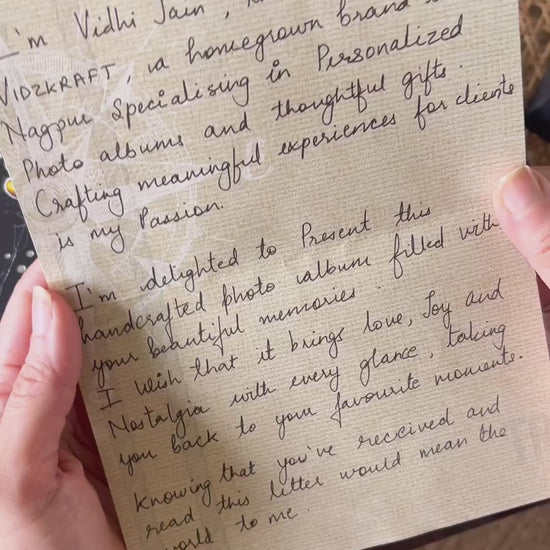 I'm Vidhi Jain,
VIDZKRAFT, a homegrown brand
Nagpur Specialising in Personalized
Photo albums and thoughtful gifts.
Crafting meaningful experiences for clients
is my Passion.
I'm delighted to Present this
handcrafted photo album filled with
your beautiful memories.
I wish that it brings love, Joy and
Nostalgia with every glance, taking
you back to your favourite moments.
Knowing that you've received and
read this letter would mean the
world to me.